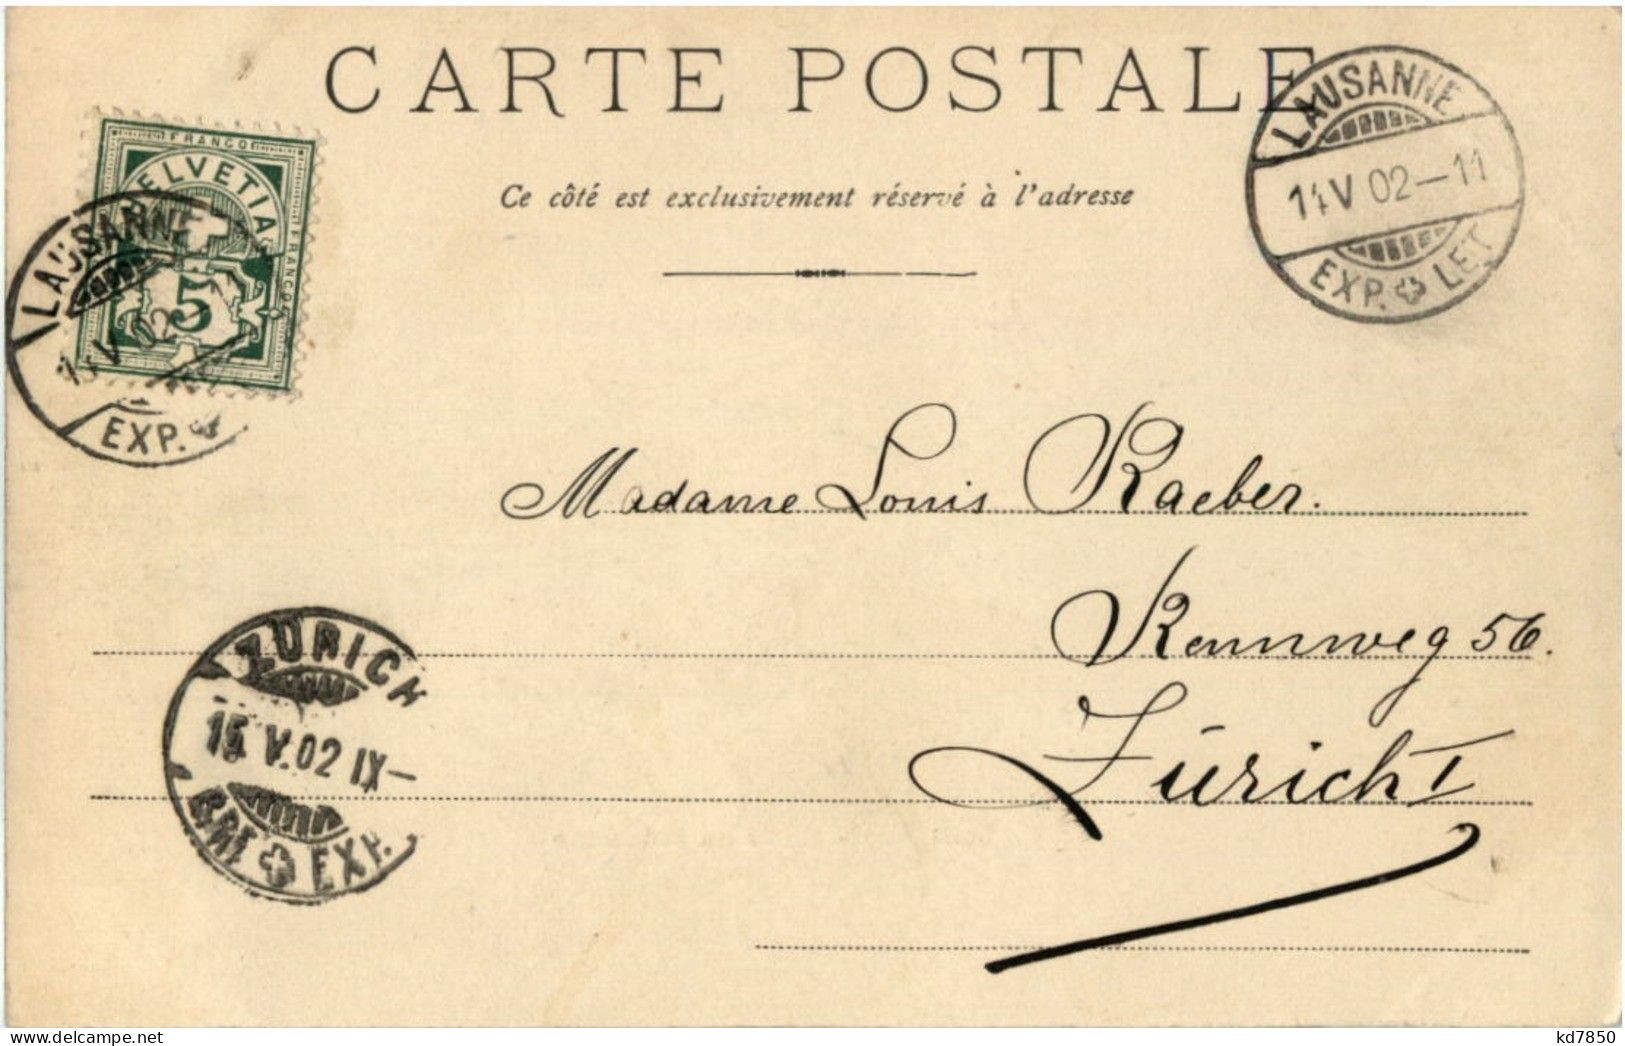 CARTE POSTALE
Ce côté est exclusivement réservé à l'adresse
FRANCO
HELVETIA
FRANCO
5
LAUSANNE
V 02-11
EXP.
LAUSANNE
14 V 02-11
EXP. LET
Madame Louis Raeber.
Rennweg 56.
Zürich I
ZÜRICH
15 V.02 IX-
BRF EXP.
delcampe.net
kd7850